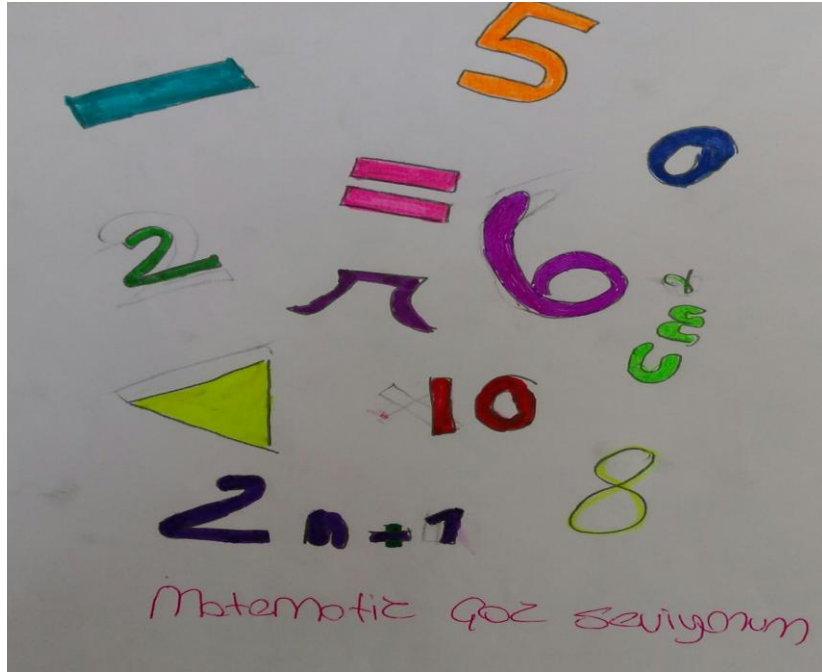 −
5
0
=
2
π
6
cm²
10
8
2n+1
Matematic çoc seviyorum